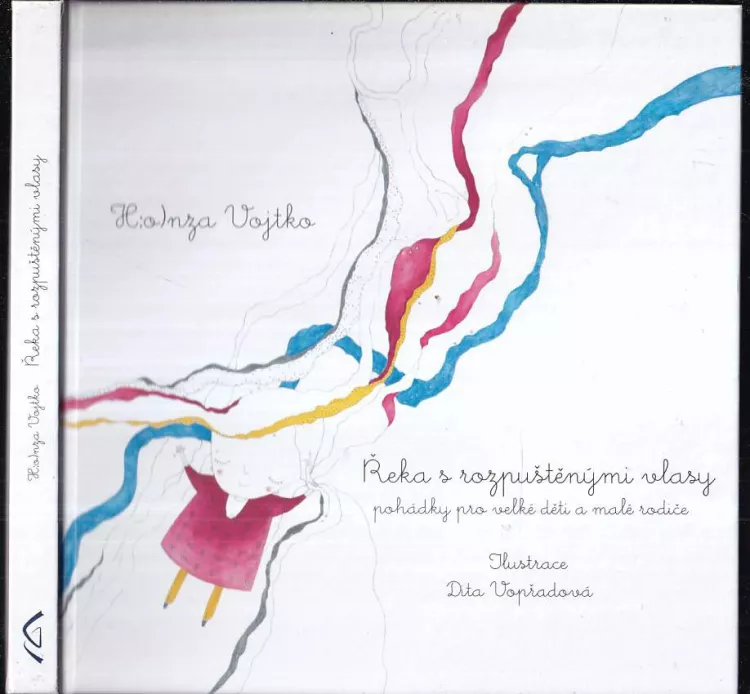 H:o)nza Vojtko Řeka s rozpuštěnými vlasy
H:o)nza Vojtko
Řeka s rozpuštěnými vlasy
pohádky pro velké děti a malé rodiče
Ilustrace
Dita Vopřadová